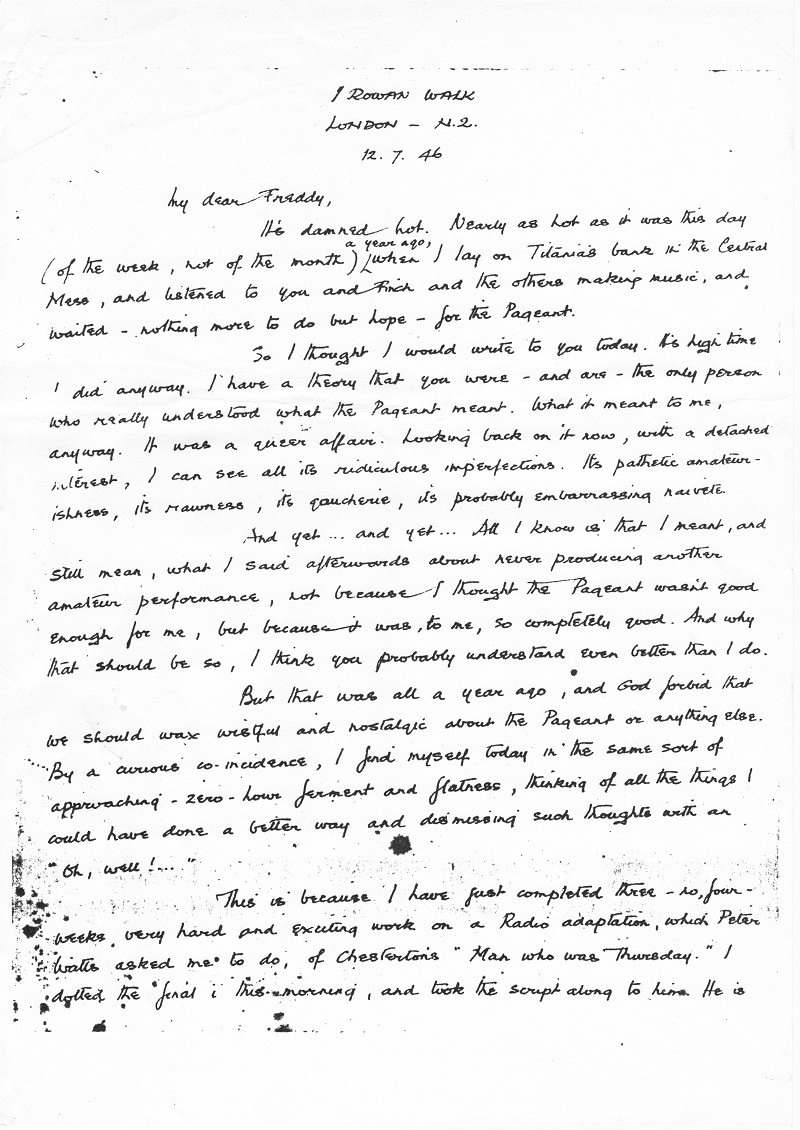 1 ROWAN WALK
LONDON – N.2.
12. 7. 46
My dear Freddy,
It's damned hot. Nearly as hot as it was this day
(of the week, not of the month) a year ago, when I lay on Titania's bank in the Central
Mess, and listened to you and Finch and the others making music, and
waited – nothing more to do but hope – for the Pageant.
So I thought I would write to you today. It's high time
I did anyway. I have a theory that you were – and are – the only person
who really understood what the Pageant meant. What it meant to me,
anyway. It was a queer affair. Looking back on it now, with a detached
interest, I can see all its ridiculous imperfections. Its pathetic amateur-
ishness, its rawness, its gaucherie, its probably embarrassing naivete.
And yet ... and yet ... All I know is that I meant, and
still mean, what I said afterwards about never producing another
amateur performance, not because I thought the Pageant wasn't good
enough for me, but because it was, to me, so completely good. And why
that should be so, I think you probably understand even better than I do.
But that was all a year ago, and God forbid that
we should wax wistful and nostalgic about the Pageant or anything else.
By a curious co-incidence, I find myself today in the same sort of
approaching-zero-hour ferment and flatness, thinking of all the things I
could have done a better way and dismissing such thoughts with an
"Oh, well!..."
This is because I have just completed three – no, four –
weeks very hard and exciting work on a Radio adaptation, which Peter
Watts asked me to do, of Chesterton's "Man who was Thursday." I
dotted the final i this morning, and took the script along to him. He is